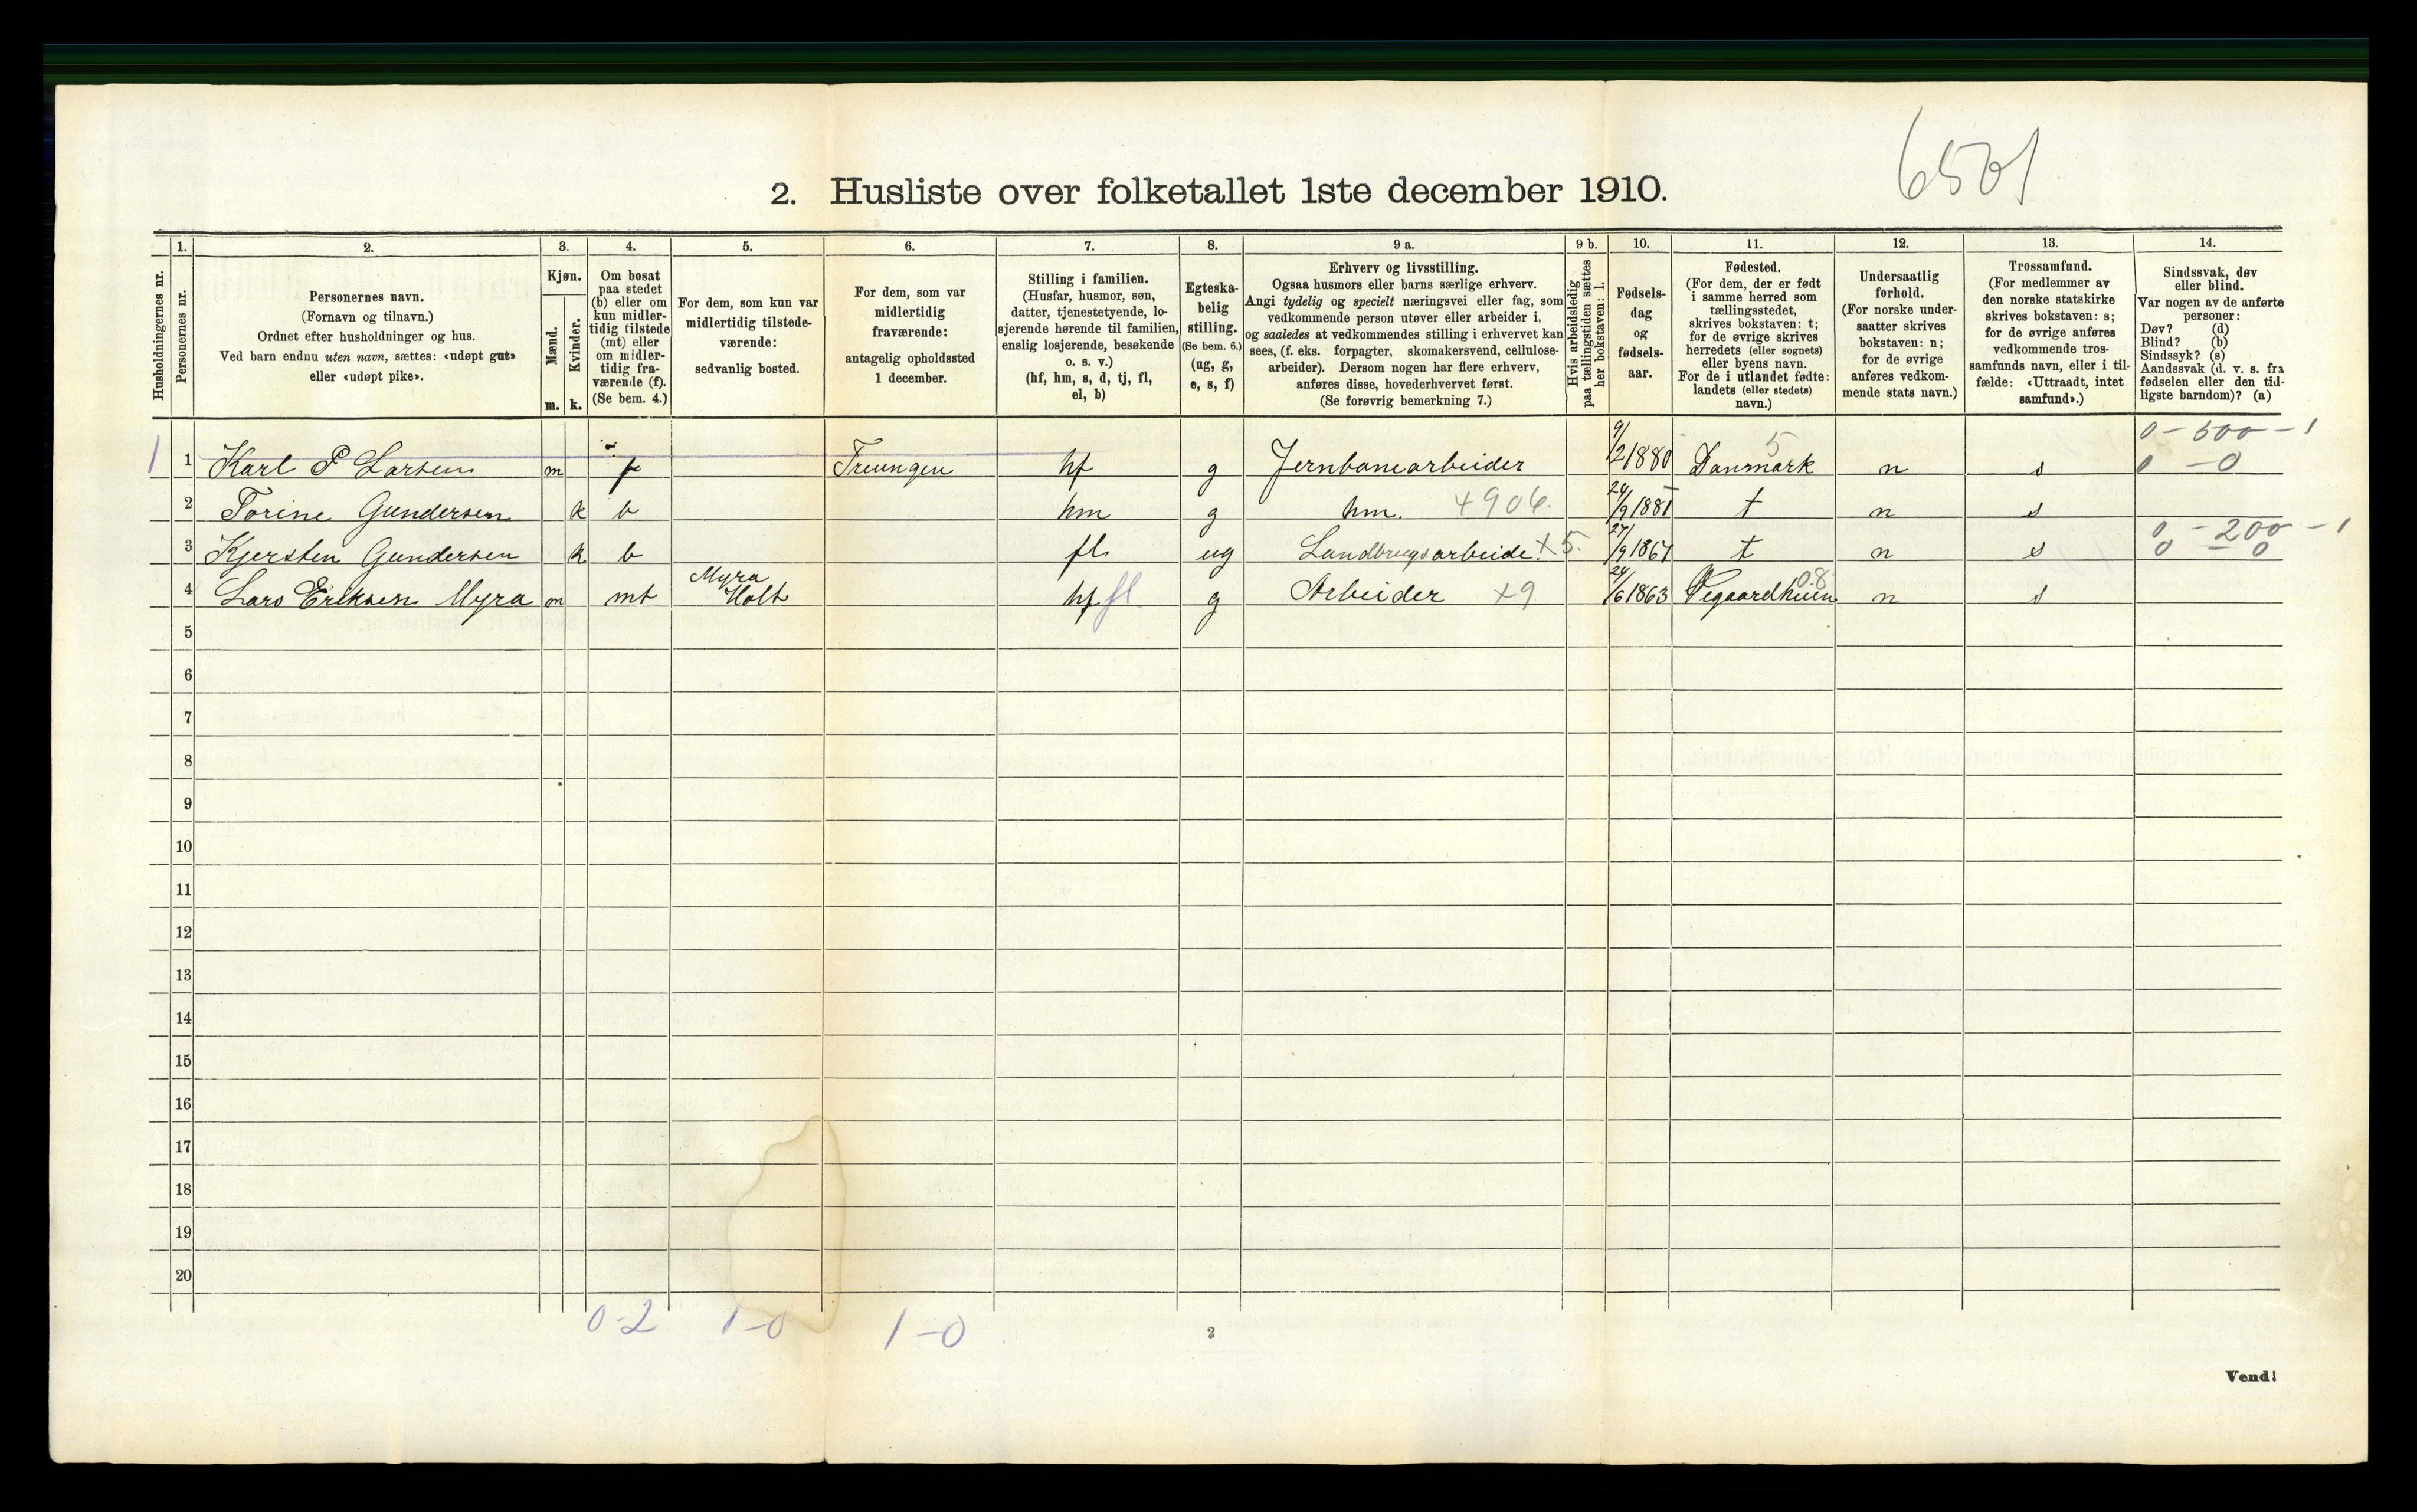 6501
2. Husliste over folketallet 1ste december 1910.
Husholdningernes nr.
1.
Personernes nr.
2.
Personernes navn.
(Fornavn og tilnavn.)
Ordnet efter husholdninger og hus.
Ved barn endnu uten navn, sættes: «udøpt gut»
eller «udøpt pike».
3.
Kjøn.
Mænd.
m.
Kvinder.
k.
4.
Om bosat
paa stedet
(b) eller om
kun midler-
tidig tilstede
(mt) eller
om midler-
tidig fra-
værende (f).
(Se bem. 4.)
5.
For dem, som kun var
midlertidig tilstede-
værende:
sedvanlig bosted.
6.
For dem, som var
midlertidig
fraværende:
antagelig opholdssted
1 december.
7.
Stilling i familien.
(Husfar, husmor, søn,
datter, tjenestetyende, lo-
sjerende hørende til familien,
enslig losjerende, besøkende
o. s. v.)
(hf, hm, s, d, tj, fl,
el, b)
8.
Egteska-
belig
stilling.
(Se bem. 6.)
(ug, g,
e, s, f)
9 a.
Erhverv og livsstilling.
Ogsaa husmors eller barns særlige erhverv.
Angi tydelig og specielt næringsvei eller fag, som
vedkommende person utøver eller arbeider i,
og saaledes at vedkommendes stilling i erhvervet kan
sees, (f. eks. forpagter, skomakersvend, cellulose-
arbeider). Dersom nogen har flere erhverv,
anføres disse, hovederhvervet først.
(Se forøvrig bemerkning 7.)
9 b.
Hvis arbeidsledig
paa tællingstiden sættes
her bokstaven: l.
10.
Fødsels-
dag
og
fødsels-
aar.
11.
Fødested.
(For dem, der er født
i samme herred som
tællingsstedet,
skrives bokstaven: t;
for de øvrige skrives
herredets (eller sognets)
eller byens navn.
For de i utlandet fødte:
landets (eller stedets)
navn.)
12.
Undersaatlig
forhold.
(For norske under-
saatter skrives
bokstaven: n;
for de øvrige
anføres vedkom-
mende stats navn.)
13.
Trossamfund.
(For medlemmer av
den norske statskirke
skrives bokstaven: s;
for de øvrige anføres
vedkommende tros-
samfunds navn, eller i til-
fælde: «Uttraadt, intet
samfund».)
14.
Sindssvak, døv
eller blind.
Var nogen av de anførte
personer:
Døv? (d)
Blind? (b)
Sindssyk? (s)
Aandssvak (d. v. s. fra
fødselen eller den tid-
ligste barndom)? (a)
1 1 Karl P Larsen m f Treungen hf g Jernbanearbeider 9/2 1880 Danmark 5 n s 0-500-1 0-0
2 Torine Gundersen k b hm g hm. 4906. 24/9 1881 t n s
3 Kjersten Gundersen k b fl ug Landbrugsarbeide. x5. 27/9 1867 t n s 0-200-1 0-0
4 Lars Eriksen Myra m mt Myra Holt hf fl g Arbeider x9 24/6 1863 Vegaardheien 08 n s
5
6
7
8
9
10
11
12
13
14
15
16
17
18
19
20
0-2 1-0 1-0
2
Vend!